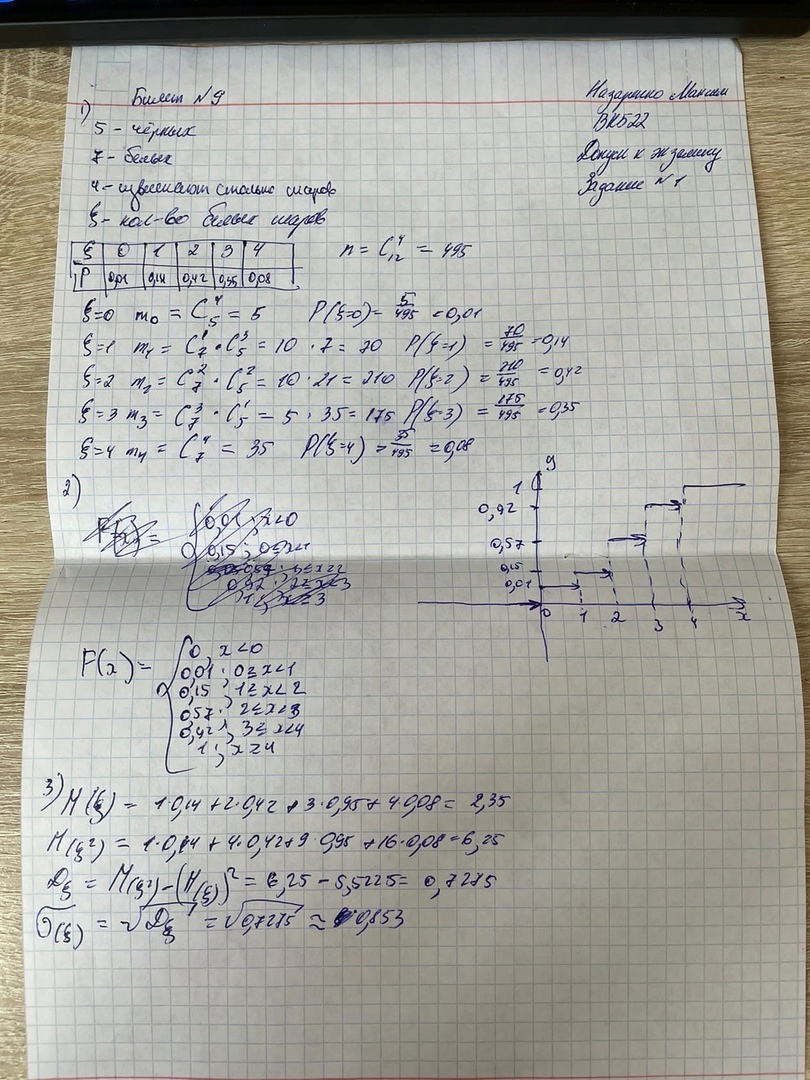 Билет N9
Назаренко Максим
ВК522
Допуск к экзамену
Задание N1
1)
5 - чёрных
7 - белых
4 - извлекают столько шаров
ξ - кол-во белых шаров
ξ 0 1 2 3 4
P 0,01 0,14 0,42 0,35 0,08
n = C₁₂⁴ = 495
ξ=0 m₀ = C₅⁴ = 5 P(ξ=0) = 5/495 = 0,01
ξ=1 m₁ = C₇¹ · C₅³ = 10 · 7 = 70 P(ξ=1) = 70/495 = 0,14
ξ=2 m₂ = C₇² · C₅² = 10 · 21 = 210 P(ξ=2) = 210/495 = 0,42
ξ=3 m₃ = C₇³ · C₅¹ = 5 · 35 = 175 P(ξ=3) = 175/495 = 0,35
ξ=4 m₄ = C₇⁴ = 35 P(ξ=4) = 35/495 = 0,08
2)
0,01 ; x<0
0,15 ; 0≤x<1
1 ; x≥3
y
1
0,92
0,57
0,15
0,01
0 1 2 3 4 x
F(x) =
0 , x<0
0,01 ; 0≥x<1
0,15 ; 1≥x<2
0,57 ; 2≤x<3
0,92 ; 3≥x<4
1 ; x≥4
3) M(ξ) = 1·0,14 + 2·0,42 + 3·0,35 + 4·0,08 = 2,35
M(ξ²) = 1·0,14 + 4·0,42 + 9·0,35 + 16·0,08 = 6,25
Dξ = M(ξ²) - (M(ξ))² = 6,25 - 5,5225 = 0,7275
σ(ξ) = √Dξ = √0,7275 ≈ 0,853